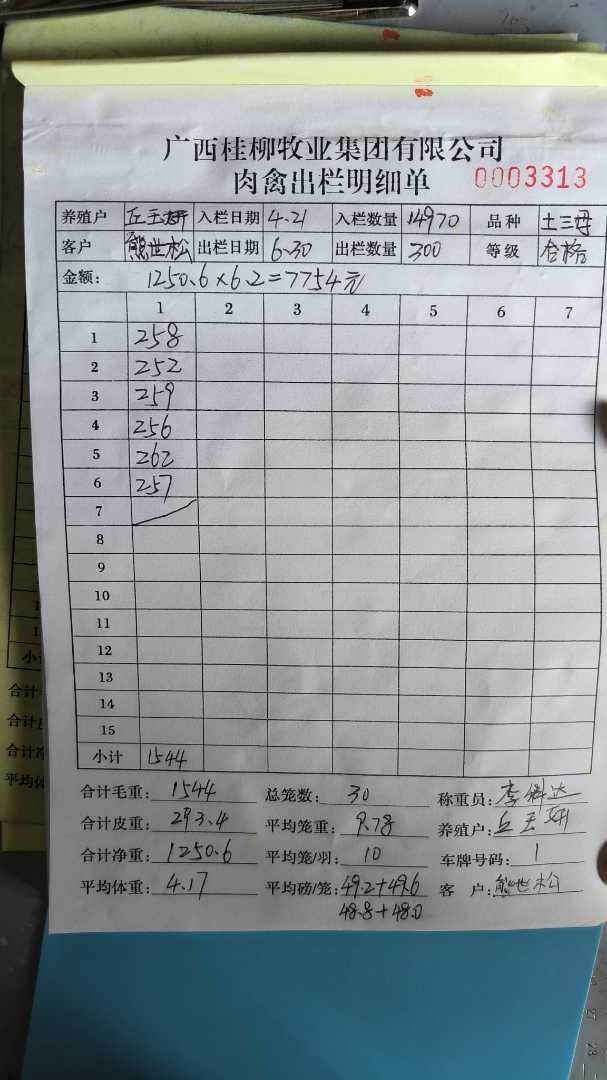 广西桂柳牧业集团有限公司
肉禽出栏明细单 0003313
养殖户 丘玉妍 入栏日期 4.21 入栏数量 14970 品种 土三母
客户 熊世松 出栏日期 6.30 出栏数量 300 等级 合格
金额: 1250.6×6.2=7754元
1 2 3 4 5 6 7
1 258
2 252
3 259
4 256
5 262
6 257
7
8
9
10
11
12
13
14
15
小计 1544
合计毛重: 1544 总笼数: 30 称重员: 李科达
合计皮重: 293.4 平均笼重: 9.78 养殖户: 丘玉妍
合计净重: 1250.6 平均笼/羽: 10 车牌号码: 1
平均体重: 4.17 平均磅/笼: 49.2+49.6 客户: 熊世松
48.8+48.0
小计
合计
合计
合计净
平均体